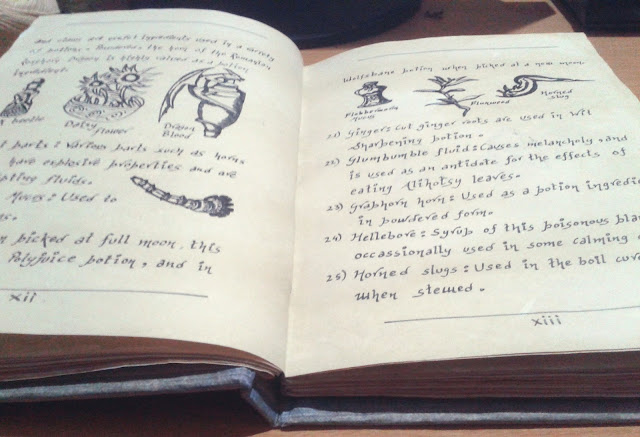 and claws are useful ingredients used in a variety
of potions. Moreover, the horn of the Romanian
Longhorn Dragon is highly valued as a potion
ingredient.
beetle
Daisy flower
Dragon Blood
t parts: Various parts such as horns
have explosive properties and are
pting fluids.
Mucus: Used to
s.
n picked at full moon, this
Polyjuice potion, and in
xii
Wolfsbane potion when picked at a new moon.
Flobberworm Mucus
Fluxweed
Horned Slug
21) Ginger: Cut ginger roots are used in Wit
Sharpening potion.
22) Glumbumble fluid: Causes melancholy, and
is used as an antidate for the effects of
eating Alihotsy leaves.
23) Graphorn horn: Used as a potion ingredie
in powdered form.
24) Hellebore: Syrup of this poisonous plan
occassionally used in some calming
25) Horned slugs: Used in the boil cure
when stewed.
xiii